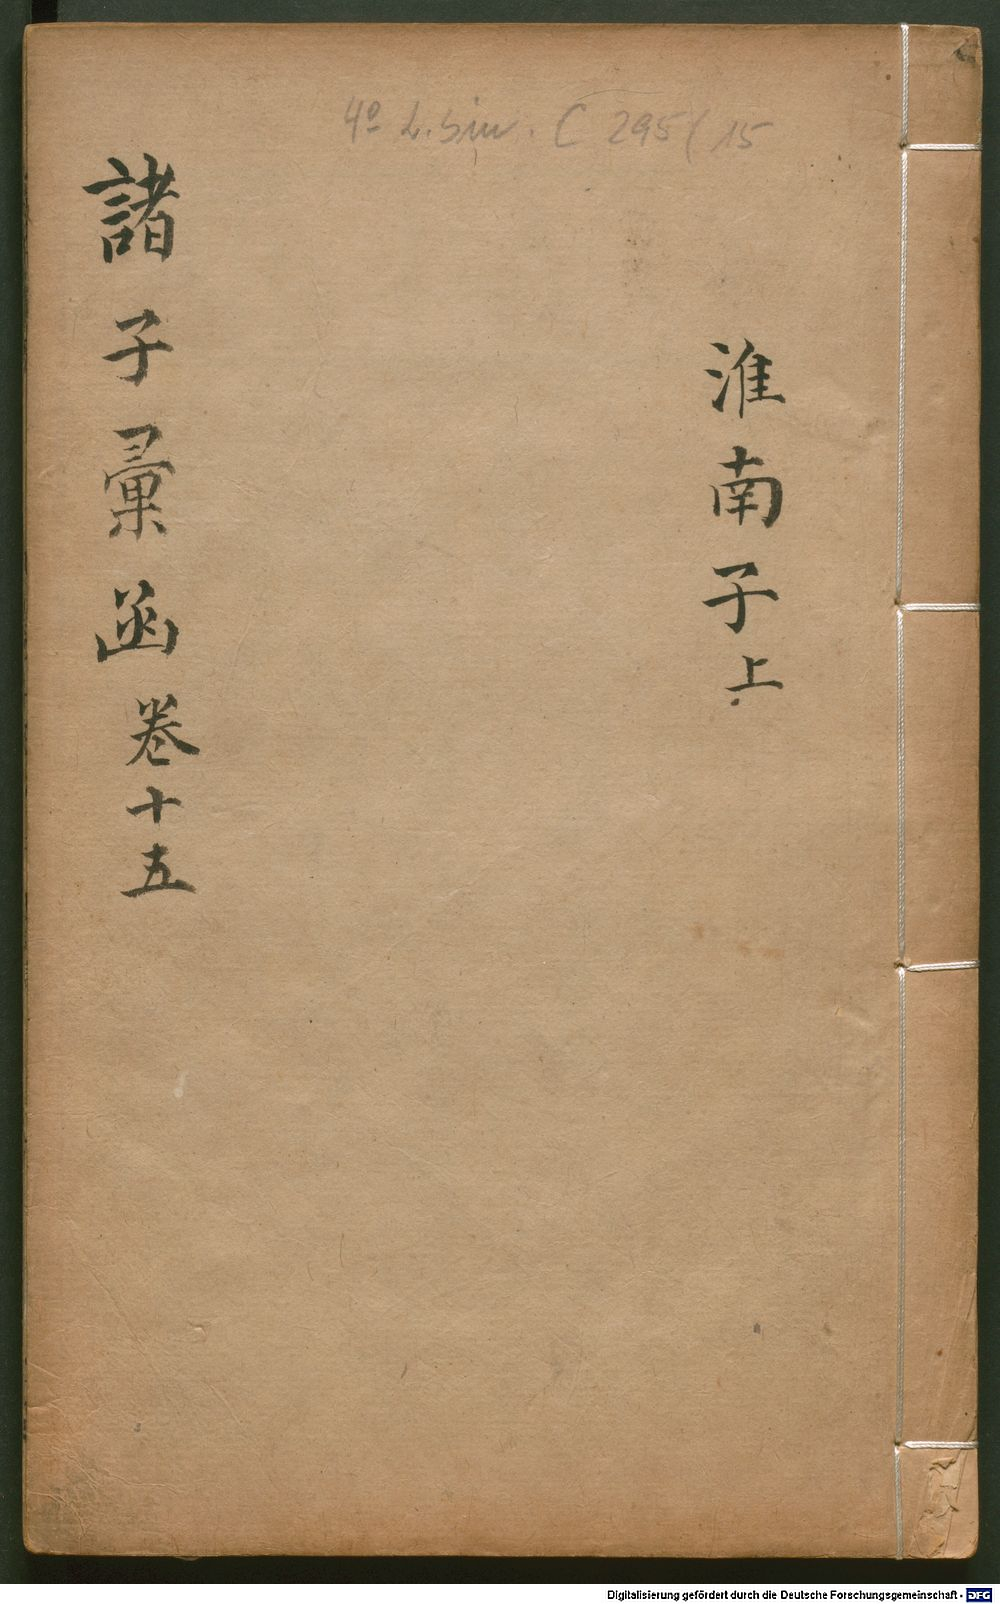 4º L. sin. C 295/15
淮南子上
諸子彙函卷十五
Digitalisierung gefördert durch die Deutsche Forschungsgemeinschaft - DFG